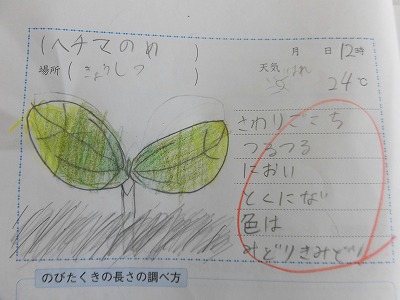 (ヘチマのめ)
月 日 12時
場所(きょうしつ)
天気 はれ
24℃
さわりごこち
つるつる
におい
とくにない
色は
みどりきみどり
のびたくきの長さの調べ方